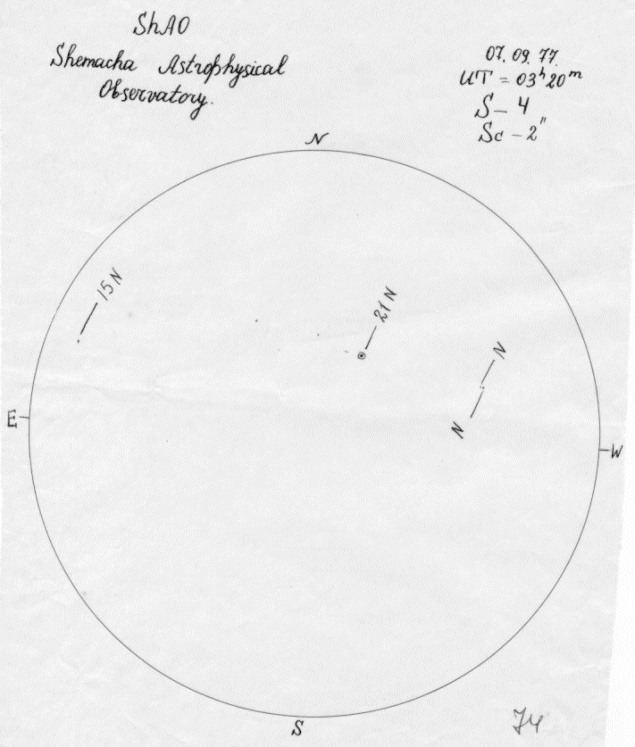 ShAO
Shemacha Astrophysical
Observatory.
07.09.77
UT = 03ʰ20ᵐ
S – 4
Sc – 2"
N
15 N
21 N
N
E
N
W
S
74